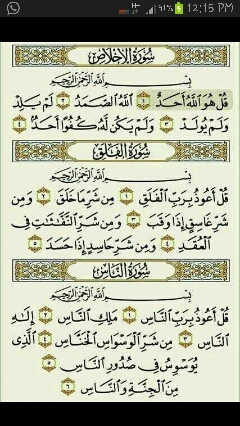 91% 12:15 PM
سُورَةُ الإِخْلَاصِ
بِسْمِ اللَّهِ الرَّحْمَٰنِ الرَّحِيمِ
قُلْ هُوَ اللَّهُ أَحَدٌ ١ اللَّهُ الصَّمَدُ ٢ لَمْ يَلِدْ
وَلَمْ يُولَدْ ٣ وَلَمْ يَكُن لَّهُ كُفُوًا أَحَدٌ ٤
سُورَةُ الفَلَقِ
بِسْمِ اللَّهِ الرَّحْمَٰنِ الرَّحِيمِ
قُلْ أَعُوذُ بِرَبِّ الْفَلَقِ ١ مِن شَرِّ مَا خَلَقَ ٢ وَمِن
شَرِّ غَاسِقٍ إِذَا وَقَبَ ٣ وَمِن شَرِّ النَّفَّاثَاتِ فِي
الْعُقَدِ ٤ وَمِن شَرِّ حَاسِدٍ إِذَا حَسَدَ ٥
سُورَةُ النَّاسِ
بِسْمِ اللَّهِ الرَّحْمَٰنِ الرَّحِيمِ
قُلْ أَعُوذُ بِرَبِّ النَّاسِ ١ مَلِكِ النَّاسِ ٢ إِلَٰهِ
النَّاسِ ٣ مِن شَرِّ الْوَسْوَاسِ الْخَنَّاسِ ٤ الَّذِي
يُوَسْوِسُ فِي صُدُورِ النَّاسِ ٥
مِنَ الْجِنَّةِ وَالنَّاسِ ٦